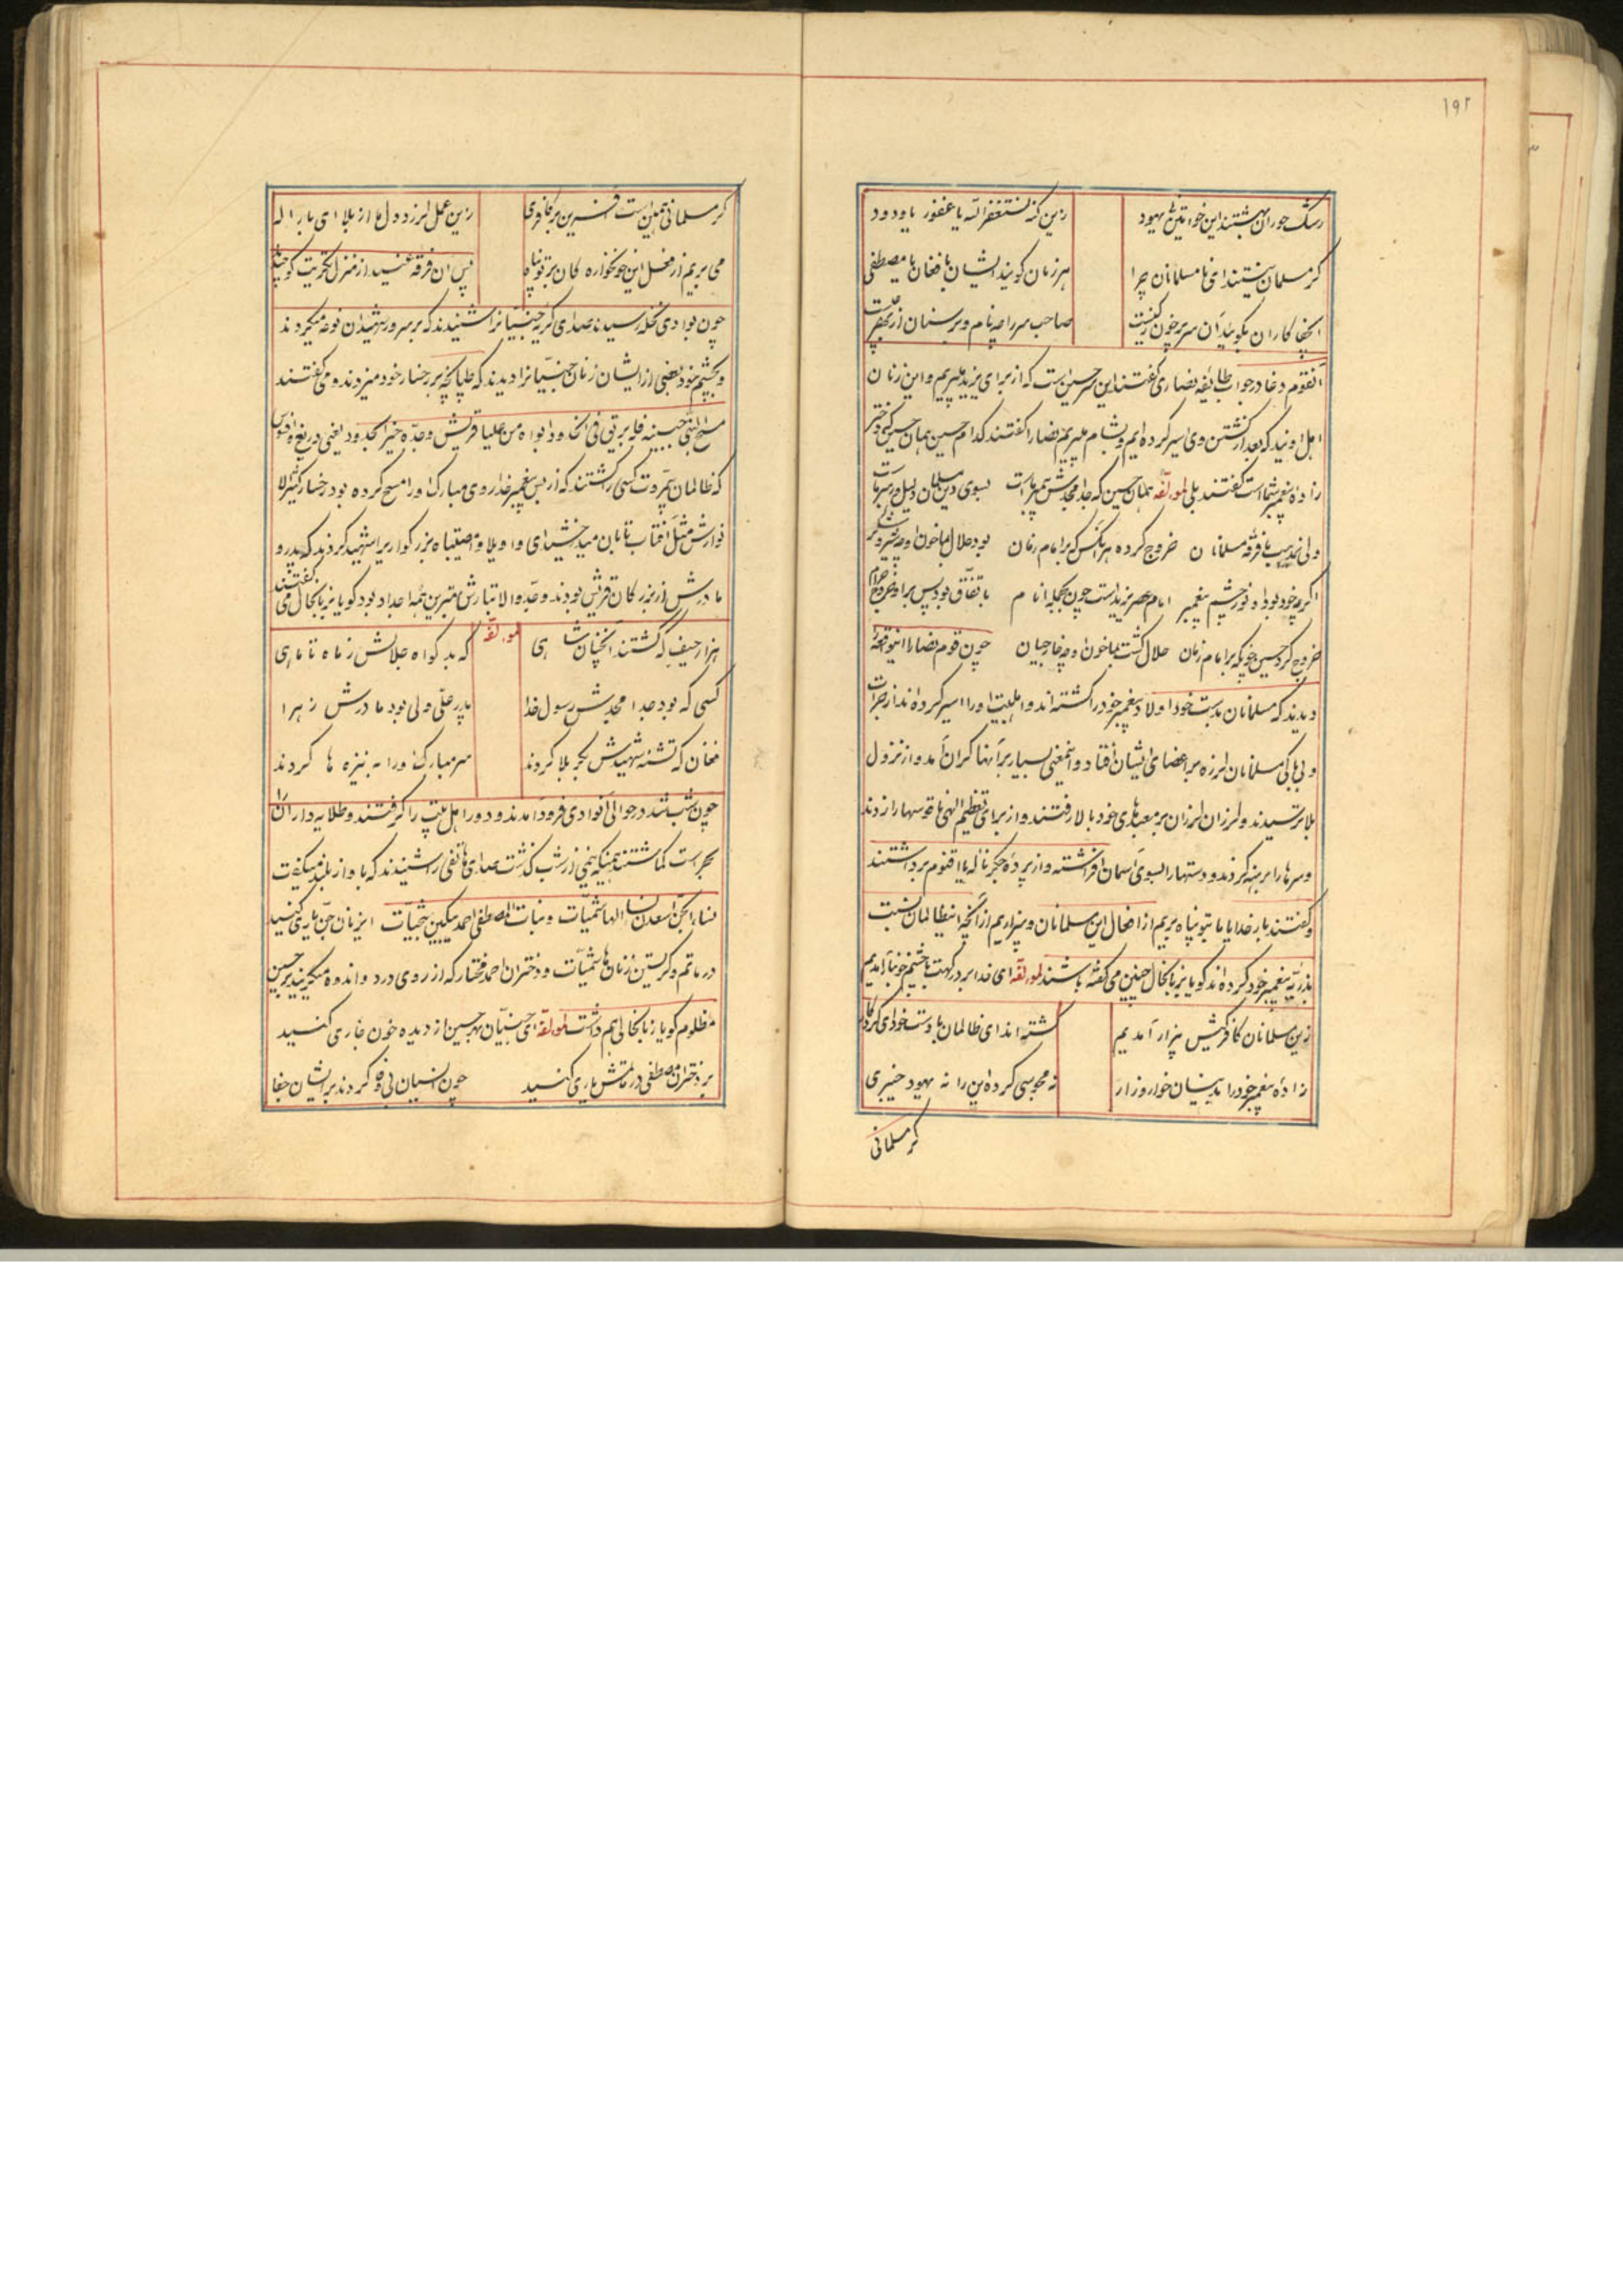 ۱۹۲
رشک حوران بهشتند این خواتین یهود زین گنه نستغفر الله یا غفور یا ودود
گر مسلمان نیستند اینها مسلمانان چرا هر زمان گویند ایشان با فغان یا مصطفی
ای جفا کاران بگوئید آن سر پر خون کیست صاحب سر را چه نام و بر سنان از بهر چیست
آنقوم دغا در جواب طایفه نصاری گفتند این سر حسین است که از برای یزید میبریم و این زنان
اهل اویند که بعد از کشتن وی اسیر کرده ایم و بشام میبریم نصارا گفتند کدام حسین همان حسین که دختر
زاده پیغمبر شما است گفتند بلی لمولفه همان حسین که جد امجدش پیمبر ماست بسوی دین مسلمان دلیل و رهبر ماست
ولی بمذهب ما فرقه مسلمانان خروج کرده هر آنکس که بر امام زمان بود حلال بما خون او چه شیر و شکر
اگرچه خود بود او نور چشم پیغمبر امام عصر یزید است چون بجمله انام باتفاق بود پس بر او خروج حرام
خروج کرد حسین چونکه بر امام زمان حلال گشت بما خون او چه خارجیان چون قوم نصارا اینواقعه
دیدند که مسلمانان بدست خود اولاد پیغمبر خود را کشته اند و اهلبیت او را اسیر کرده اند از جرات
و بی باکی مسلمانان لرزه بر اعضای ایشان افتاد و اینمعنی بسیار بر آنها گران آمد و از نزول
بلا ترسیدند و لرزان لرزان بر معبدهای خود بالا رفتند و از برای تعظیم الهی ناقوسها را زدند
و سرها را برهنه کردند و دستها را بسوی آسمان افراشته و از پرده جگر ناله یا اقنوم برداشتند
و گفتند بار خدایا ما بتو پناه بریم از افعال این مسلمانان و بیزاریم از آنچه اینظالمان نسبت
بذریه پیغمبر خود کرده اند گویا بزبانحال چنین می گفته باشند لمولفه ای خدا بر درگهت با چشم خونبار آمدیم
زین مسلمانان کافر کیش بیزار آمدیم کشته اند ای ظالمان با دست خود ای کردگار
زاده پیغمبر خود را بدینسان خوار و زار نه مجوسی کرده این را نه یهود خیبری
گر مسلمانی
گر مسلمانی همین است آفرین بر کافری زین عمل لرزد دل ما از بلا ای بار اله
می بریم از فعل این خونخواره کان بر تو پناه پس آن فرقه عنید از منزل تکریت کوچیده
چون بوادی نخله رسیدند صدای گریه جنیانرا شنیدند که بر سرور شهیدان نوحه میکردند
و بچشم خود بعضی از ایشان زنان جنیانرا دیدند که طپانچه بر رخسار خود میزدند و می گفتند
مسح النبی جبینه فله بریق فی الخدود ابواه من علیا قریش وجده خیر الجدود یعنی دریغ و افسوس
که ظالمان بیمروت کسی را کشتند که از بس پیغمبر خدا روی مبارک او را مسح کرده بود رخسار کثیرالا
نوارش مثل آفتاب تابان میدرخشید ای واویلا وامصیبتاه بزرگواریرا شهید کردند که پدر و
مادرش از بزرگان قریش بودند و جد والا تبارش بهترین همه اجداد بود گویا بزبانحال می گفتند
هزار حیف که کشتند آنچنان شاهی لمولفه که بد گواه جلالش ز ماه تا ماهی
کسی که بود جد امجدش رسول خدا پدر علی ولی بود مادرش زهرا
فغان که تشنه شهیدش بکربلا کردند سر مبارک او را به نیزه ها کردند
چون شب شد در حوالی آنوادی فرود آمدند و دور اهل بیت را گرفتند و طلایه داران را
بحراست گماشتند همینکه نیمی از شب گذشت صدای هاتفی را شنیدند که باواز بلند میگفت
نساء الجن اسعدن نساء الهاشمیات و بنات المصطفی احمد یبکین شجیات ای زنان جن یاری کنید
در ماتم و گریستن زنان هاشمیات و دختران احمد مختار که از روی درد و اندوه میگریند بر حسین
مظلوم گویا زبانحالی هم داشت لمولفه ای جنیان بهر حسین از دیده خون جاری کنید
بر دختران مصطفی در ماتمش یاری کنید چون انسیان بی وفا کردند بر ایشان جفا